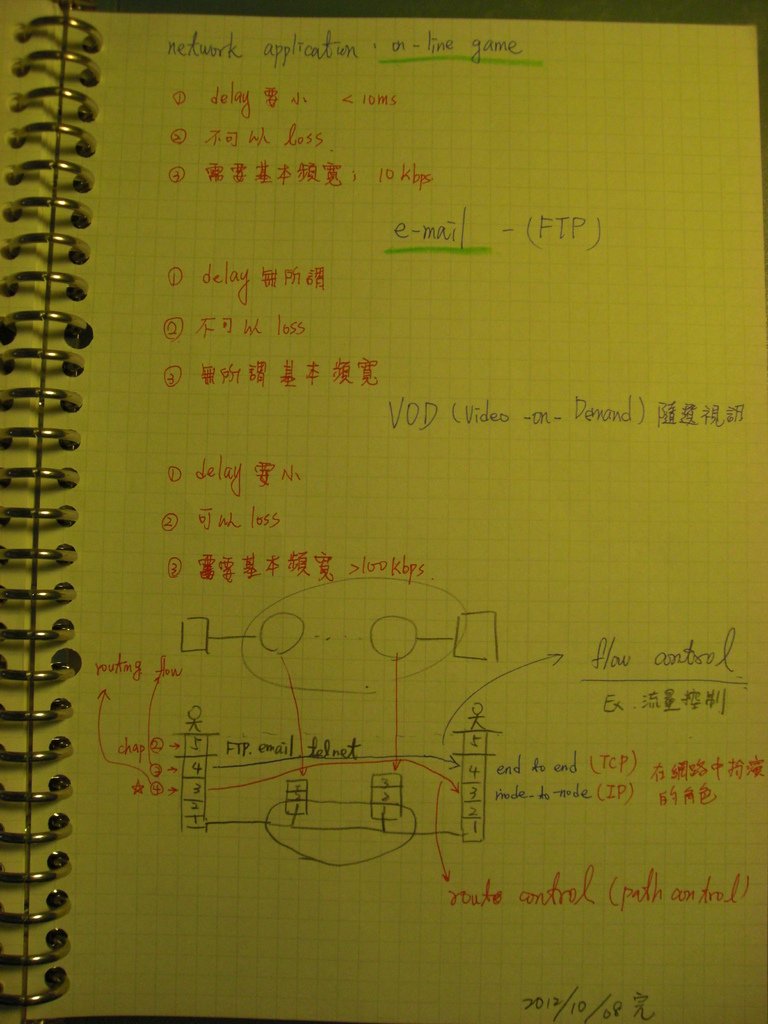 network application : on-line game
① delay 要小 < 10ms
② 不可以 loss
③ 需要基本頻寬; 10 kbps
e-mail - (FTP)
① delay 無所謂
② 不可以 loss
③ 無所謂基本頻寬
VOD (Video -on- Demand) 隨選視訊
① delay 要小
② 可以 loss
③ 需要基本頻寬 >100kbps.
routing flow
flow control
Ex. 流量控制
chap ② → 5 FTP. email telnet 5
③ → 4 4 end to end (TCP) 在網路中扮演
☆ ④ → 3 3 3 3 node-to-node (IP) 的角色
2 2 2 2
1 1 1 1
route control (path control)
2012/10/08 完